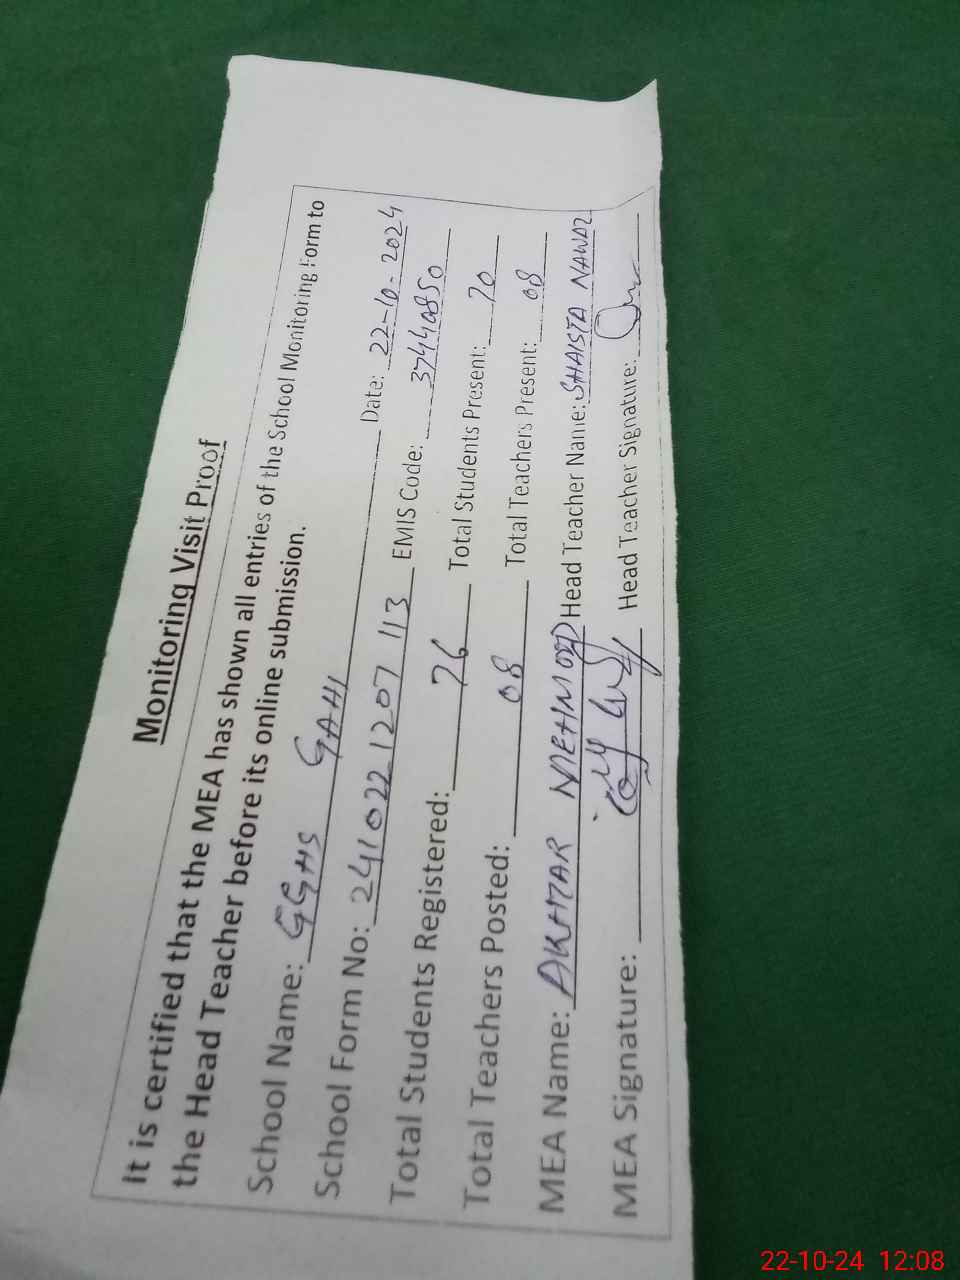 Monitoring Visit Proof
It is certified that the MEA has shown all entries of the School Monitoring Form to
the Head Teacher before its online submission.
School Name: GGHS GAHI Date: 22-10-2024
School Form No: 241022 1207 113 EMIS Code: 37440850
Total Students Registered: 76 Total Students Present: 70
Total Teachers Posted: 08 Total Teachers Present: 08
MEA Name: AKHTAR MEHMOOD Head Teacher Name: SHAISTA NAWAZ
MEA Signature: Head Teacher Signature:
22-10-24 12:08